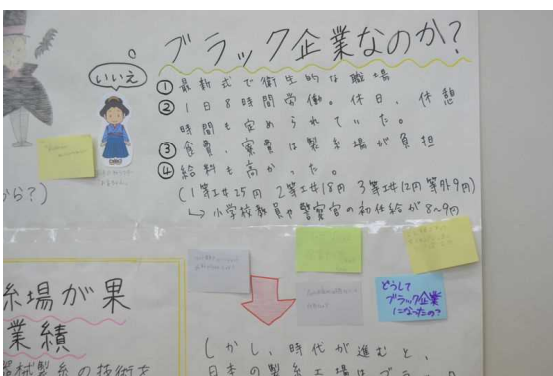 ブラック企業なのか?
いいえ
① 最新式で衛生的な職場
② 1日8時間労働。休日、休憩
時間も定められていた。
③ 食費、寮費は製糸場が負担
④ 給料も高かった。
(1等工女25円 2等工女18円 3等工女12円 等外9円)
↳小学校教員や警察官の初任給が8~9円
から?)
どうして
ブラック企業
になったの?
糸場が果
業績
器械製糸の技術を
しかし、時代が進むと、
日本の製糸工場はブラック